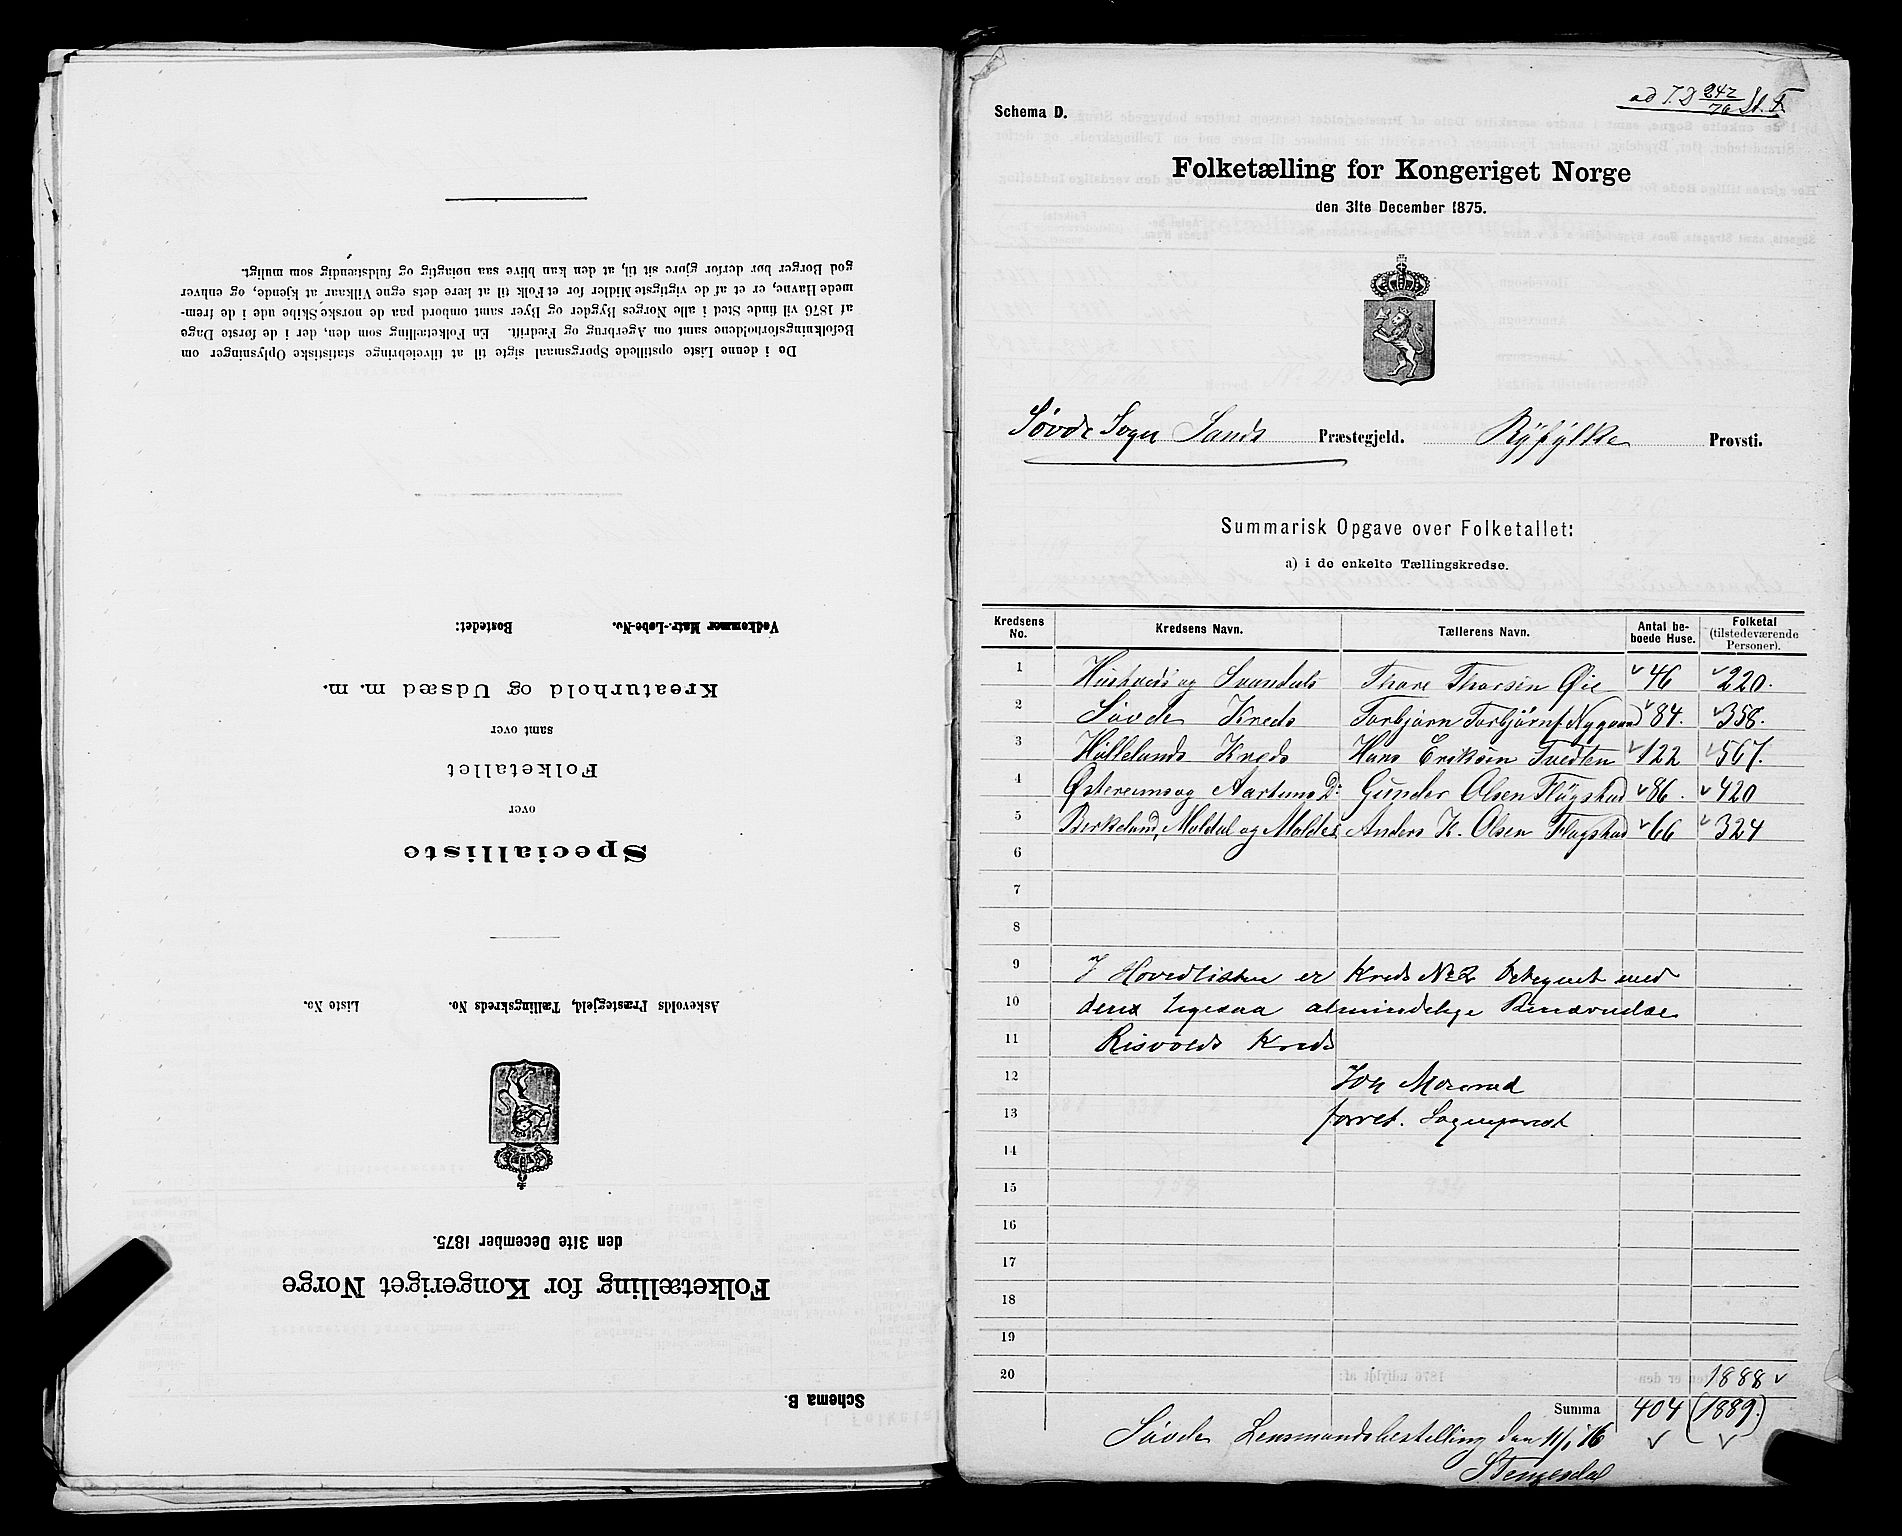 Schema B.
Folketælling for Kongeriget Norge
den 31te December 1875.
Askevolds Præstegjeld, Tællingskreds No. Liste No.
Specialliste
over
Folketallet
samt over
Kreaturhold og Udsæd m. m.
Vedkommer Matr.-Løbe-No. Bostedet:
De i denne Liste opstillede Spørgsmaal sigte til at tilveiebringe statistiske Oplysninger om
Befolkningsforholdene samt om Agerbrug og Fædrift. En Folketælling som den, der i de første Dage
af 1876 vil finde Sted i alle Norges Bygder og Byer samt ombord paa de norske Skibe ude i de frem-
mede Havne, er et af de vigtigste Midler for et Folk til at lære dets egne Vilkaar at kjende, og enhver
god Borger bør derfor gjøre sit til, at den kan blive saa nøiagtig og fuldstændig som muligt.
ad J.D 242/76
Schema D.
Folketælling for Kongeriget Norge
den 31te December 1875.
Søvde Sogn Sands Præstegjeld. Ryfylke Provsti.
Summarisk Opgave over Folketallet:
a) i de enkelte Tællingskredse.
Kredsens No. Kredsens Navn. Tællerens Navn. Antal beboede Huse. Folketal (tilstedeværende Personer).
1 og Svandals Thore Thorsen Øie 46 220.
2 Søvde Kreds Torbjørn Torbjørns. Nygaard 84. 358.
3 Hallelands Kreds Hans Eriksen Tvedten 122 567.
4 og Aartuns D: Gunder Olsen Fløgstad 86. 420
5 Birkeland, Maldal og Maldes Anders K. Olsen Fløgstad 66 324
6
7
8
9 I Hovedlisten er Kreds No 2 betegnet med
10 den ligesaa almindelige Benævnelse
11 Risvolds Kreds
12 Joh
13 forret. Sognepræst
14
15
16
17
18
19
20 1888
Summa 404 (1889.)
Søvde Lensmandsbestilling den 11/1 76